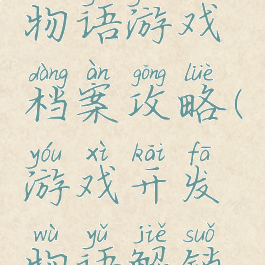 物语游戏
dàng àn gōng lüè
档案攻略(
yóu xì kāi fā
游戏开发
wù yǔ jiě suǒ
物语解锁